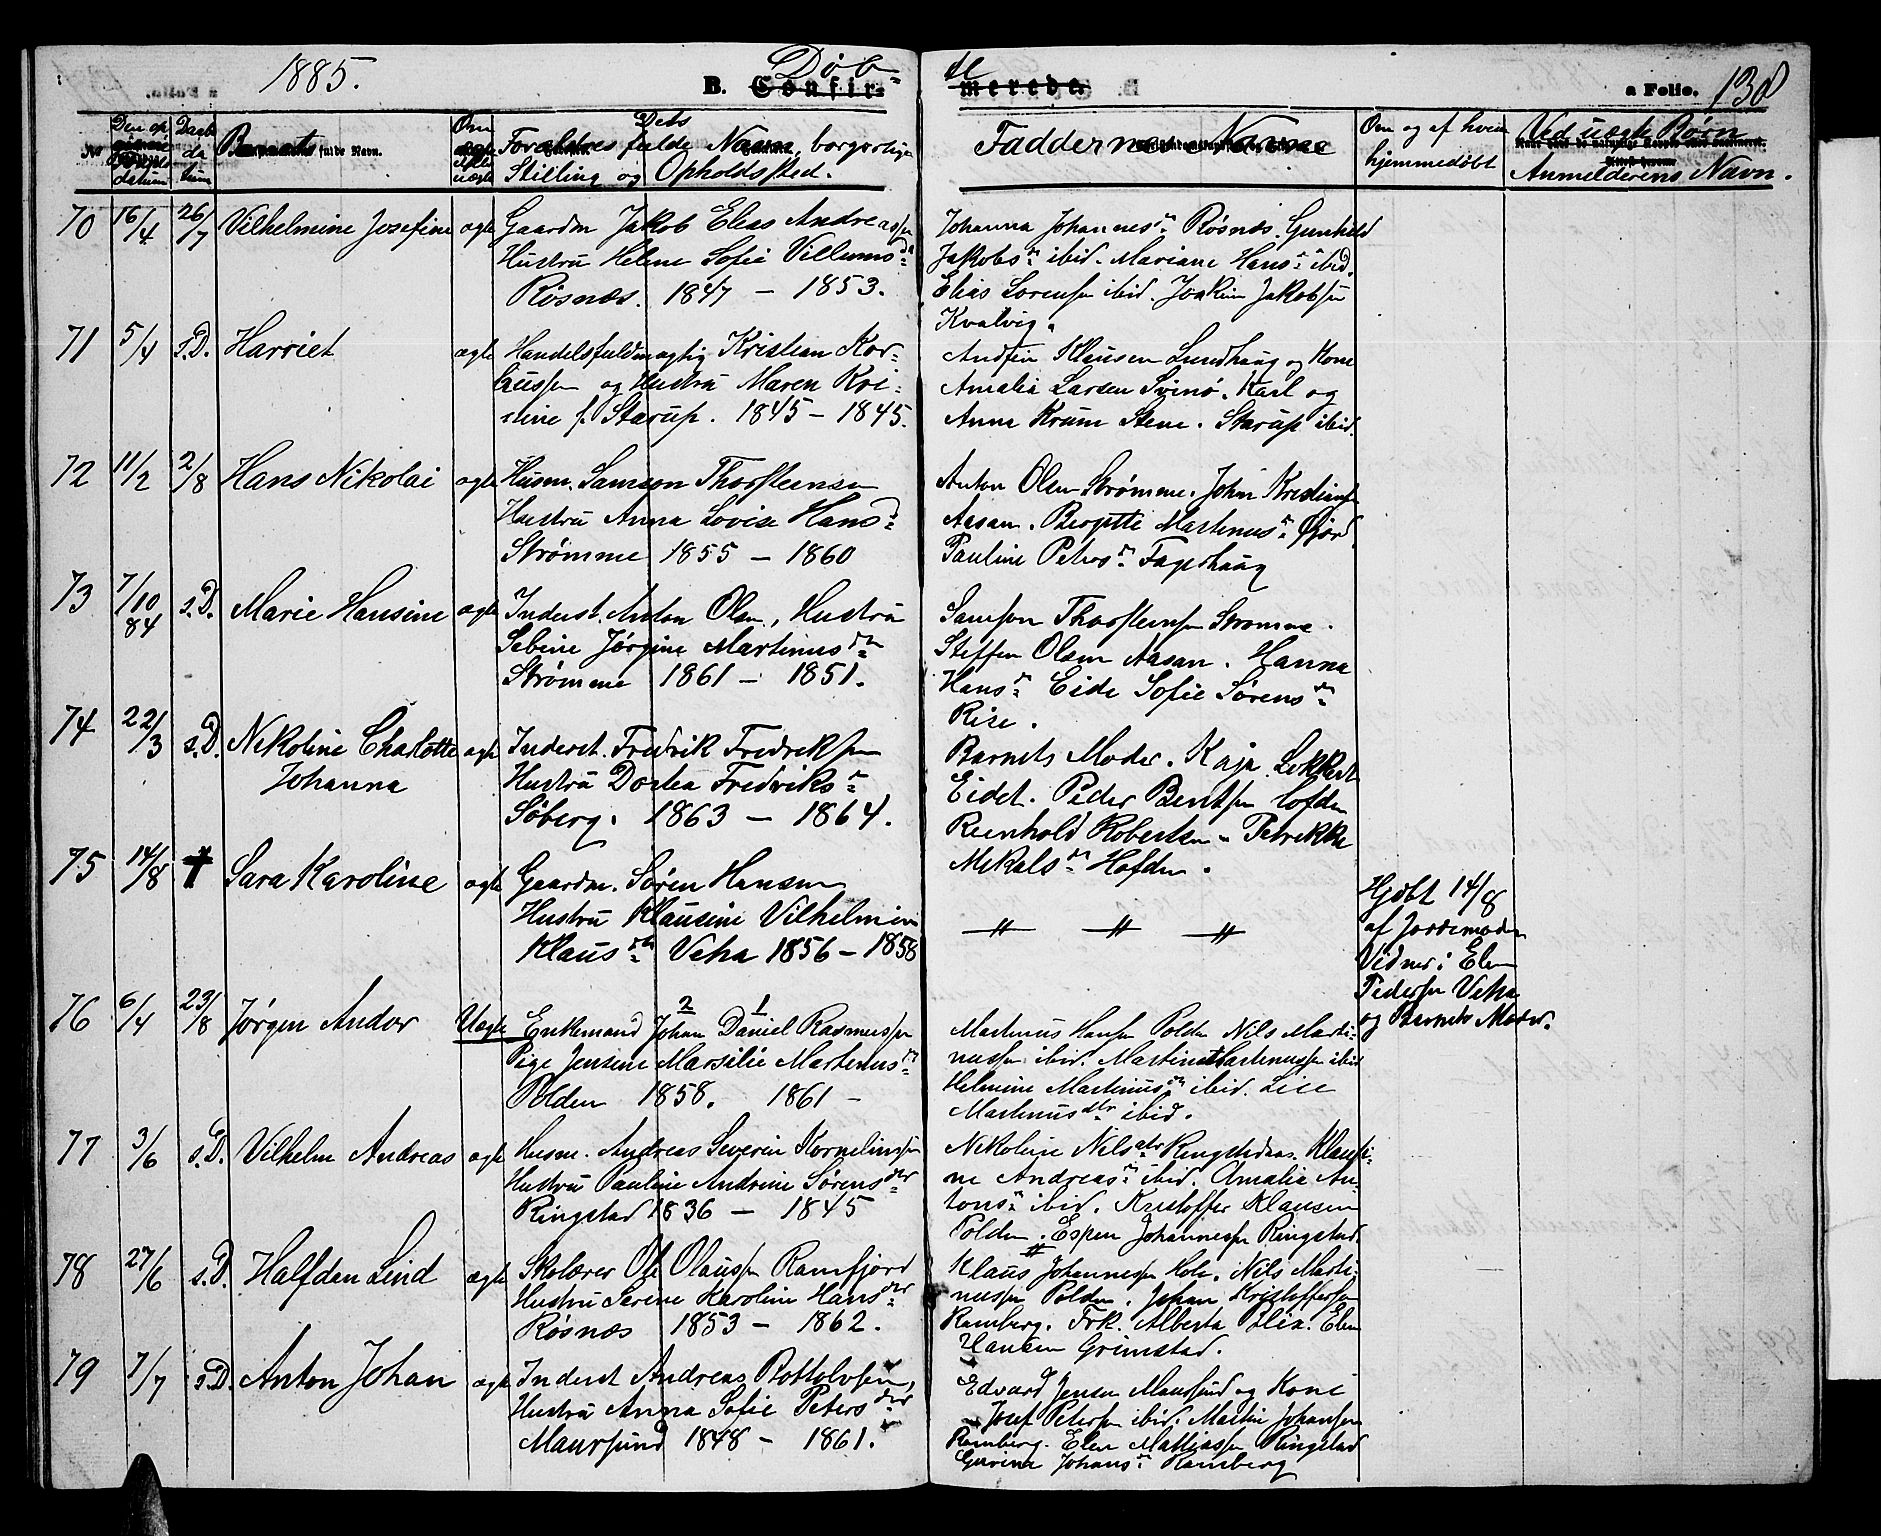 1885. B. Døbte a Folio. 138
No Barnets fulde Navn. Forældres fulde Navn, borgerlige Faddernes Navne Om og af hvem Ved uægte Børn
Stilling og Opholdssted. hjemmedøbt Anmelderens Navn.
70 16/4 26/7 Vilhelmine Josefine ægte Gaardm Jakob Elias Andreassen
Hustru Helene Sofie Villumsd.
Røsnæs. 1847 – 1853.
Johanna Johannesd. Røsnæs. Gunhild
Jakobsd. ibid. Mariane Hansd. ibid.
Elias Lorensen ibid. Joakim Jakobsen
Kvalvig.
71 5/4 s.D. Harriet ægte Handelsfuldmægtig Kristian Kor-
og Hustru Maren Kri-
stine f. Starup. 1845 – 1845.
Andfin Klausen Lundhaug og Kone
Amalia Larsen Svinø. Karl og
Anna Krum Stene. Starup ibid.
72 11/2 2/8 Hans Nikolai ægte Husm. Samson Thorsteinsen
Hustru Anna Lovise Hansd.
Strømme 1855 – 1860
Anton Olsen Strømme. John Kristians
Aasan. Bergitte Martinusd.
Pauline Petersd. Fagerhaug
73 7/10 84 s.D. Marie Hansine ægte Inderst. Anton Olsen, Hustru
Sebine Jørgine Martinusd.
Strømme 1861 – 1851.
Samson Thorsteinsen Strømme.
Steffen Olsen Aasan. Hanna
Hansd. Eide Sofie Sørensd.
Rise.
74 22/3 s.D. Nikoline Charlotte ægte Inderst. Fredrik Fredriksen
Johanna Hustru Dortea Fredriksd.
Søberg. 1863 – 1864.
Barnets Moder. Kaja
Eidet. Peder Bentsen Hofden
Reinhold Robertsen. Petrikke
Mikalsd. Hofden.
75 14/8 † Sara Karoline ægte Gaardm. Søren Hansen
Hustru Klausine Vilhelmine
Klausd. Veha 1856 – 1858
〃 〃 〃
Hjdbt 14/8
af Jordemoder
Vidner: Elen
Pedersen Veha
og Barnets Moder.
76 6/4 23/8 Jørgen Andor Uægte Enkemand 2 Johan 1 Daniel Rasmussen
Pige Jensine Marsilie Martinusd.
Polden 1858. 1861 –
Martinus Hansen Polden Nils Marti-
nussen ibid. Martin Martinussen ibid
Helmine Martinusd. ibid. Lise
Martinusdtr ibid.
77 3/6 s.D. Vilhelm Andreas ægte Husm. Andreas Severin Korneliussen
Hustru Pauline Andrine Sørensdtr
Ringstad 1836 – 1845
Nikoline Nilsdtr Ringstad. Klausi-
ne Andreasd. ibid. Amalia An-
tonsd. ibid. Kristoffer Klausen
Polden. Espen Johannessen Ringstad.
78 27/6 s.D. Halfdan Lind ægte Skolærer Ole Olaussen Ramfjord
Hustru Serine Karoline Hansdtr
Røsnæs 1853 – 1862.
Klaus Johannessen Hole. Nils Marti-
nussen Polden. Johan Kristoffersen
Ramberg. Frk. Alberta Blix. Elen
Hansen Grimstad.
79 7/7 s.D. Anton Johan ægte Inderst Andreas Rottolvsen,
Hustru Anna Sofie Petersdtr
Maursund 1848 – 1861.
Edvard Jensen Maursund og Kone
Josef Petersen ibid. Martin Johansen
Ramberg. Elen Mattiassen Ringstad
Gurina Johansd. Ramberg